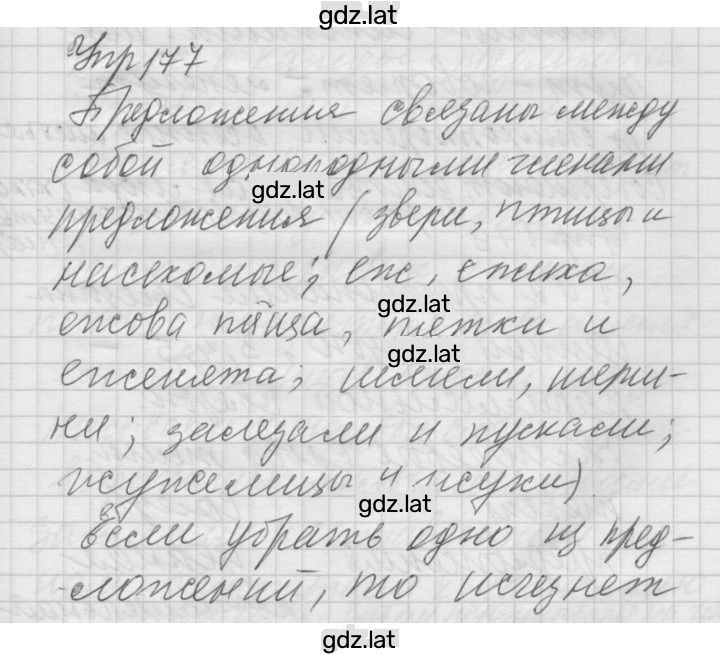 gdz.lat
Упр 177
Предложения связаны между
собой однородными членами
gdz.lat
предложения (звери, птицы и
насекомые; еж, ежиха,
gdz.lat
ежова тётки и
gdz.lat
еженята; шмели,
заглезали и пускали;
жужелицы и жуки)
gdz.lat
Если убрать одно из пред-
ложений, то исчезнет
gdz.lat